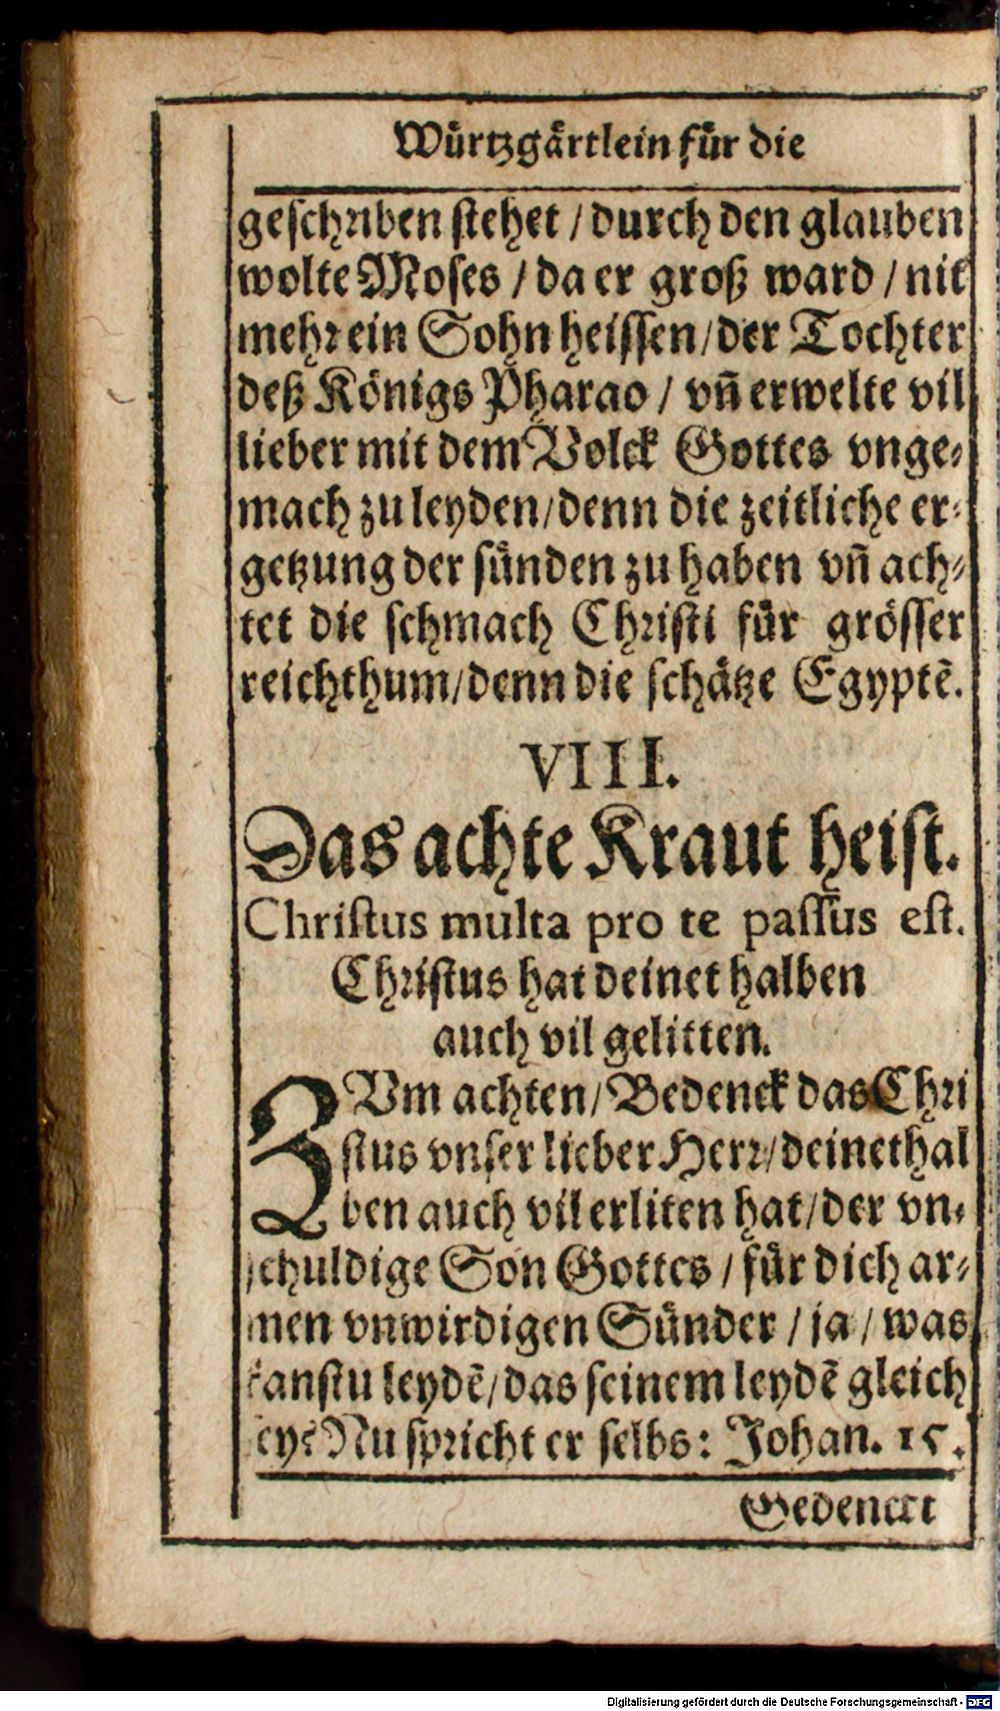 Würtzgärtlein für die
geschriben stehet / durch den glauben
wolte Moses / da er groß ward / nit
mehr ein Sohn heissen / der Tochter
deß Königs Pharao / vñ erwelte vil
lieber mit dem Volck Gottes vnge-
mach zu leyden / denn die zeitliche er-
getzung der sünden zu haben vñ ach-
tet die schmach Christi für grösser
reichthum / denn die schätze Egyptẽ.
VIII.
Das achte Kraut heist.
Christus multa pro te passus est.
Christus hat deinet halben
auch vil gelitten.
ZVm achten / Bedenck das Chri
stus vnser lieber Herr / deinethal
ben auch vil erliten hat / der vn-
schuldige Son Gottes / für dich ar-
men vnwirdigen Sünder / ja / was
kanstu leydẽ / das seinem leydẽ gleich
sey? Nu spricht er selbs: Johan. 15.
Gedenckt
Digitalisierung gefördert durch die Deutsche Forschungsgemeinschaft - DFG